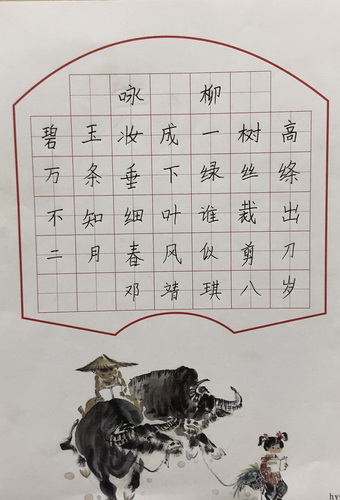 咏柳
碧玉妆成一树高
万条垂下绿丝绦
不知细叶谁裁出
二月春风似剪刀
邓靖琪八岁